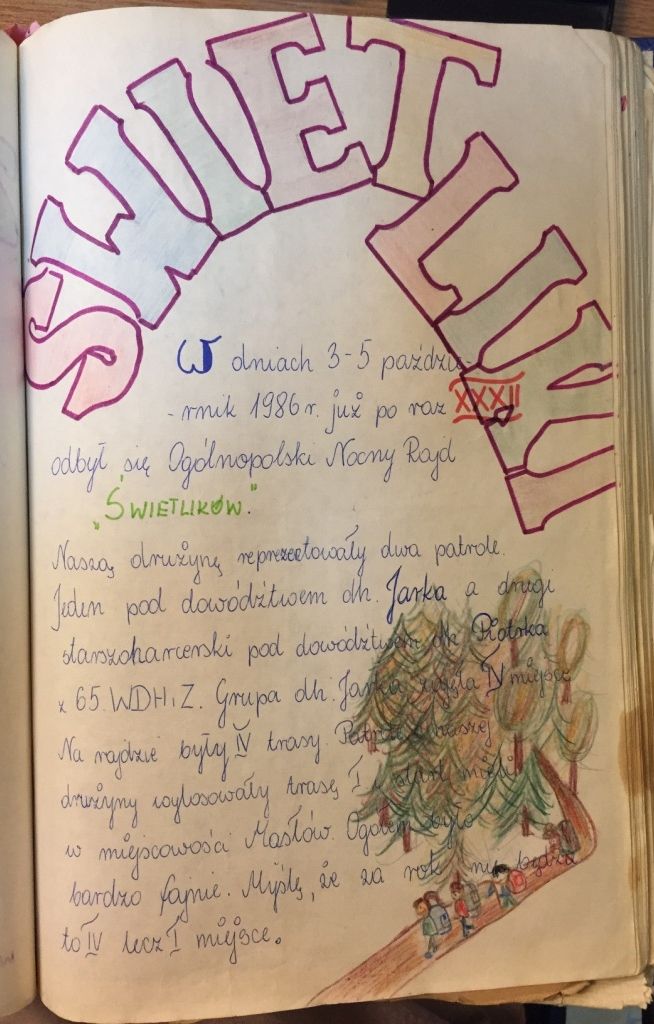 ŚWIETLIKI
W dniach 3-5 paździe-
-rnik 1986 r. już po raz XXXII
odbył się Ogólnopolski Nocny Rajd
"ŚWIETLIKÓW".
Naszą drużynę reprezetowały dwa patrole.
Jeden pod dowództwem dh. Jarka a drugi
starszoharcerski pod dowództwem dh Piotrka
z 65. WDH i Z. Grupa dh. Jarka zajęła IV miejsce
Na rajdzie były IV trasy. Patrole z naszej
drużyny wylosowały trasę I, start mieli
w miejscowości Masłów. Ogólem było
bardzo fajnie. Myślę, że za rok nie będzie
to IV lecz I miejsce.